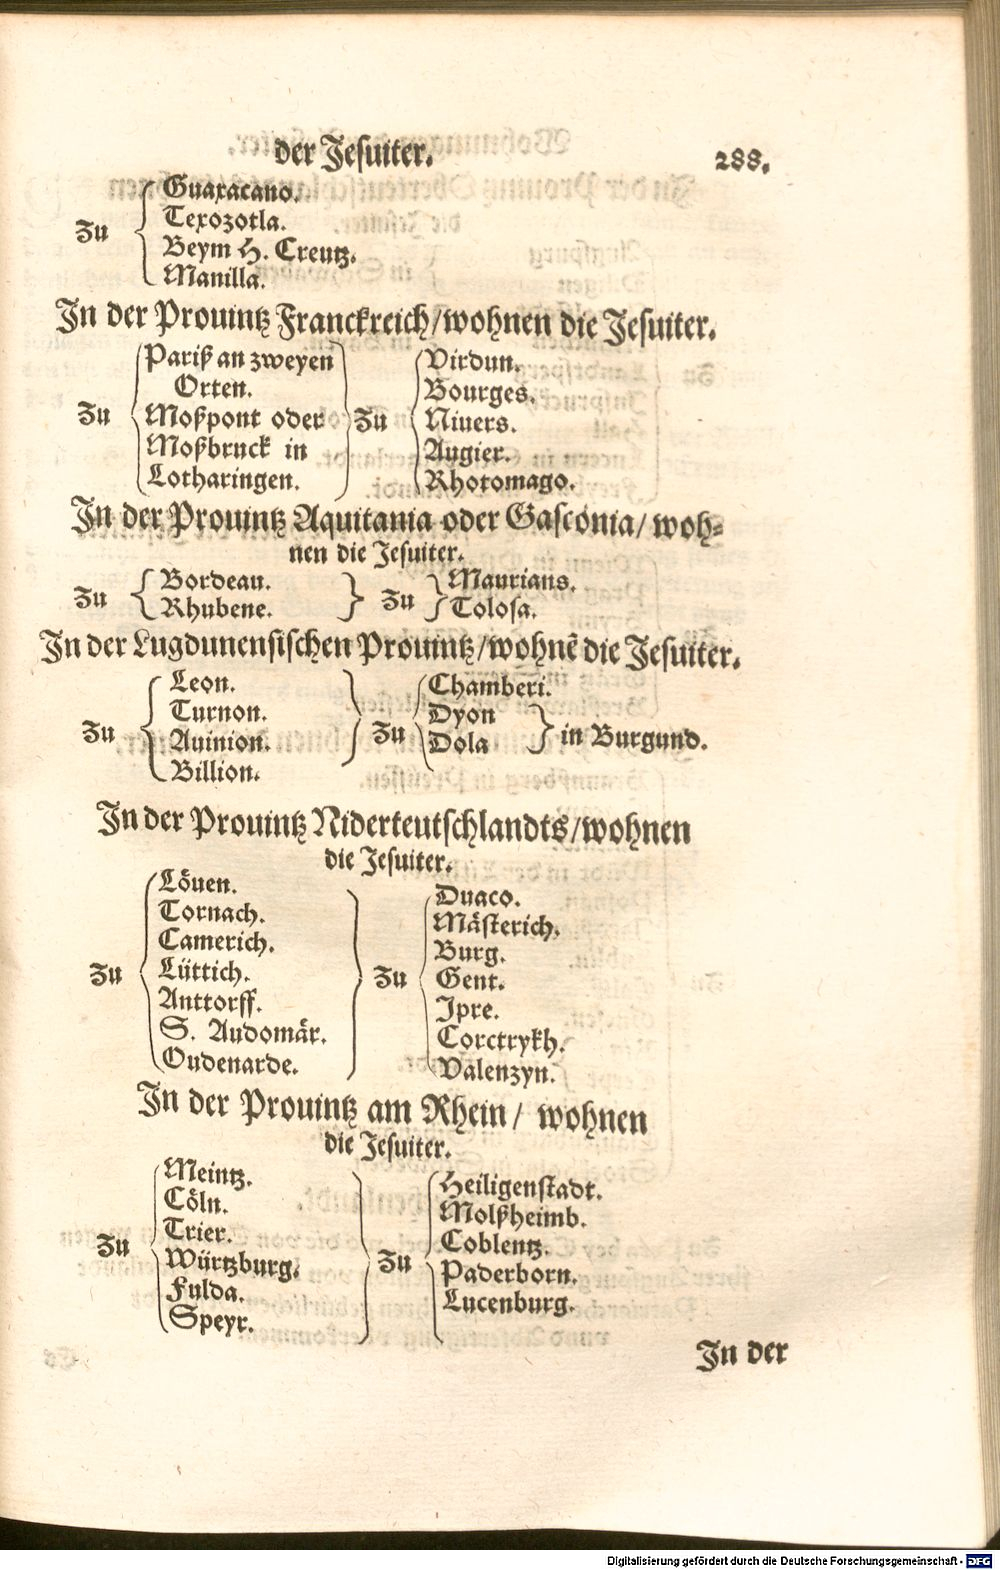 der Jesuiter.
288.
Zu
Guaxacano.
Texozotla.
Beym H. Creutz.
Manilla.
In der Prouintz Franckreich/wohnen die Jesuiter.
Zu
Pariß an zweyen
Orten.
Moßpont oder
Moßbruck in
Lotharingen.
Zu
Virdun.
Bourges.
Niuers.
Augier.
Rhotomago.
In der Prouintz Aquitania oder Gasconia/ woh-
nen die Jesuiter.
Zu
Bordeau.
Rhubene.
Zu
Maurians.
Tolosa.
In der Lugdunensischen Prouintz/wohnẽ die Jesuiter.
Zu
Leon.
Turnon.
Auinion.
Billion.
Zu
Chamberi.
Dyon
Dola
in Burgund.
In der Prouintz Niderteutschlandts/wohnen
die Jesuiter.
Zu
Löuen.
Tornach.
Camerich.
Lüttich.
Anttorff.
S. Audomär.
Oudenarde.
Zu
Duaco.
Mästerich.
Burg.
Gent.
Ipre.
Corctrykh.
Valenzyn.
In der Prouintz am Rhein/ wohnen
die Jesuiter.
Zu
Meintz.
Cöln.
Trier.
Würtzburg.
Fulda.
Speyr.
Zu
Heiligenstadt.
Molßheimb.
Coblentz.
Paderborn.
Lucenburg.
In der
Digitalisierung gefördert durch die Deutsche Forschungsgemeinschaft - DFG